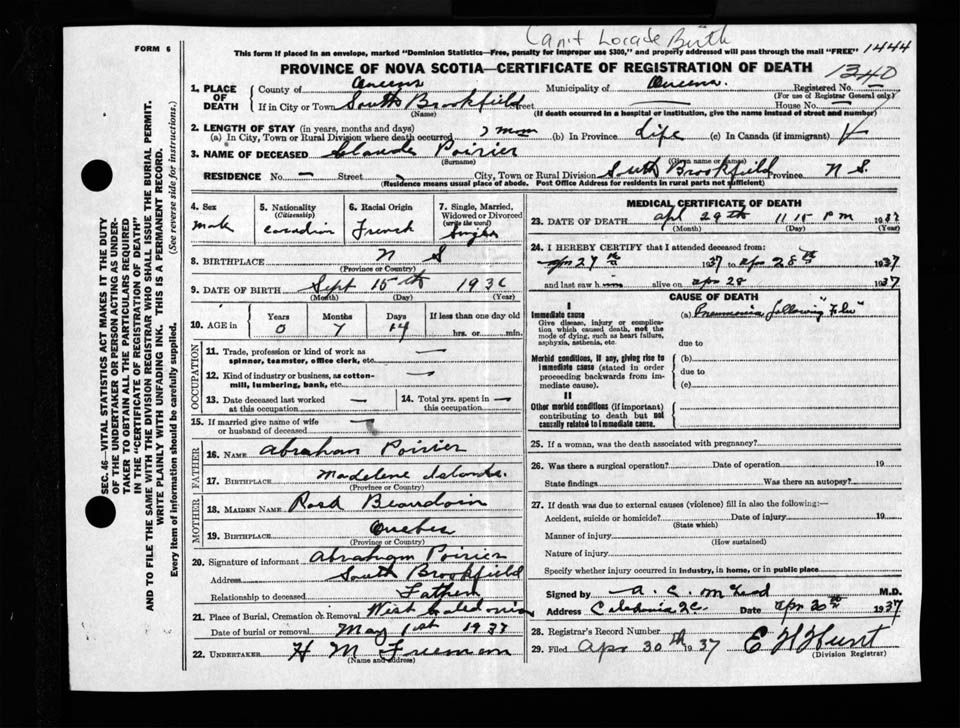 Can't Locate Birth
FORM 6
This form if placed in an envelope, marked "Dominion Statistics—Free, penalty for improper use $300," and properly addressed will pass through the mail "FREE" 1444
PROVINCE OF NOVA SCOTIA—CERTIFICATE OF REGISTRATION OF DEATH
1340
1. PLACE OF DEATH County of Queens Municipality of Queens Registered No.
(For use of Registrar General only)
If in City or Town South Brookfield Street House No.
(Name) (If death occurred in a hospital or institution, give the name instead of street and number)
2. LENGTH OF STAY (in years, months and days)
(a) In City, Town or Rural Division where death occurred 7 mon (b) In Province Life (c) In Canada (if immigrant)
3. NAME OF DECEASED Claude Poirier
(Surname) (Given name or names)
RESIDENCE No. — Street City, Town or Rural Division South Brookfield Province N S.
(Residence means usual place of abode. Post Office Address for residents in rural parts not sufficient)
4. Sex
male
5. Nationality
(Citizenship)
Canadian
6. Racial Origin
French
7. Single, Married, Widowed or Divorced
(write the word)
Single
8. BIRTHPLACE N S
(Province or Country)
9. DATE OF BIRTH Sept 15th 1936
(Month) (Day) (Year)
10. AGE in Years Months Days If less than one day old
0 7 14 hrs. or min.
OCCUPATION
11. Trade, profession or kind of work as spinner, teamster, office clerk, etc. —
12. Kind of industry or business, as cotton-mill, lumbering, bank, etc. —
13. Date deceased last worked at this occupation —
14. Total yrs. spent in this occupation —
15. If married give name of wife or husband of deceased
FATHER
16. NAME Abraham Poirier
17. BIRTHPLACE Madelene Islands.
(Province or Country)
MOTHER
18. MAIDEN NAME Rose Beaudoin
19. BIRTHPLACE Quebec
(Province or Country)
20. Signature of informant Abraham Poirier
Address South Brookfield
Relationship to deceased Father
21. Place of Burial, Cremation or Removal West Caledonia
Date of burial or removal May 1st 1937
22. UNDERTAKER H M Freeman
(Name and address)
MEDICAL CERTIFICATE OF DEATH
23. DATE OF DEATH Apl 29th 11 15 PM 1937
(Month) (Day) (Year)
24. I HEREBY CERTIFY that I attended deceased from:
Apr 27th 1937 to Apr 28th 1937
and last saw h alive on Apr 28 1937
CAUSE OF DEATH
I
Immediate cause
Give disease, injury or complication which caused death, not the mode of dying, such as heart failure, asphyxia, asthenia, etc.
(a) Pneumonia following "Flu"
due to
Morbid conditions, if any, giving rise to immediate cause (stated in order proceeding backwards from immediate cause).
(b)
due to
(c)
II
Other morbid conditions (if important) contributing to death but not causally related to immediate cause.
25. If a woman, was the death associated with pregnancy?
26. Was there a surgical operation? Date of operation 19
State findings Was there an autopsy?
27. If death was due to external causes (violence) fill in also the following:—
Accident, suicide or homicide? Date of injury 19
(State which)
Manner of injury
(How sustained)
Nature of injury
Specify whether injury occurred in industry, in home, or in public place
Signed by A. C. McLeod M.D.
Address Caledonia Q.C. Date Apr 30th 1937
28. Registrar's Record Number
29. Filed Apr 30th 1937 E H Hunt
(Division Registrar)
SEC. 46—VITAL STATISTICS ACT MAKES IT THE DUTY
OF THE UNDERTAKER OR PERSON ACTING AS UNDER-
TAKER TO OBTAIN ALL THE PARTICULARS REQUIRED
IN THE "CERTIFICATE OF REGISTRATION OF DEATH"
AND TO FILE THE SAME WITH THE DIVISION REGISTRAR WHO SHALL ISSUE THE BURIAL PERMIT.
WRITE PLAINLY WITH UNFADING INK. THIS IS A PERMANENT RECORD.
Every item of information should be carefully supplied. (See reverse side for instructions.)